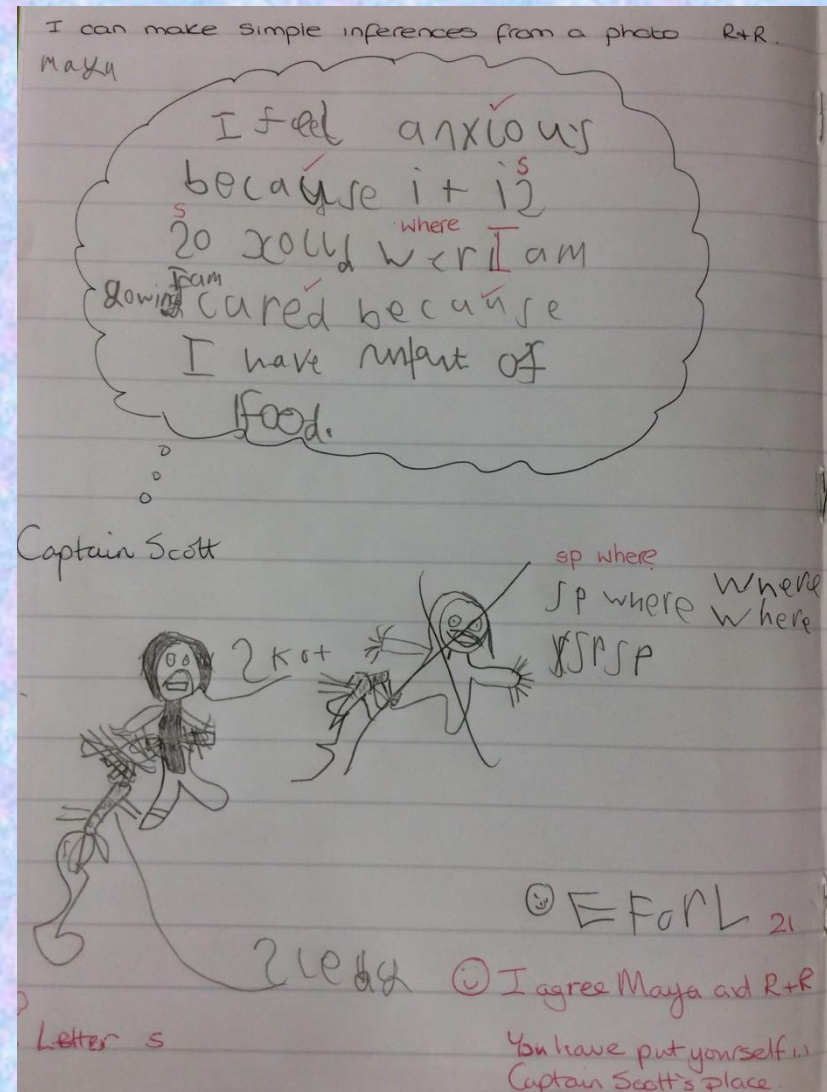 I can make simple inferences from a photo R+R.
Maya
I feel anxious
because it i2
s
s
20 xould wer I am
where
I am
glowing cured because
I have of
food.
Captain Scott
sp where
sp where where
where
spsp
2kot
E ForL 21
2ledg
I agree Maya and R+R
Letter s
You have put yourself in
Captain Scott's place.